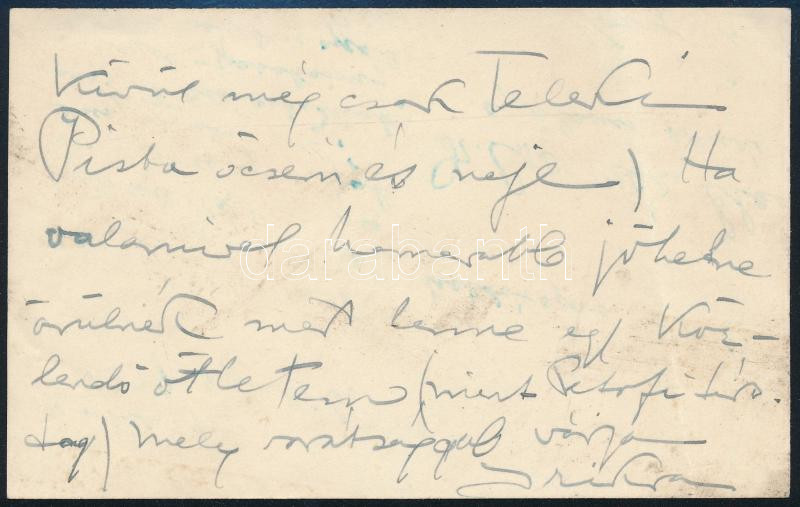 Kívül még csak Teleki
Pista öcsém és neje) Ha
valamivel hamarabb jöhetne
örülnék mert lenne egy Köz-
lendő ötletem (mint Petofi társ.
tag) mely barátsággal várja
darabanth